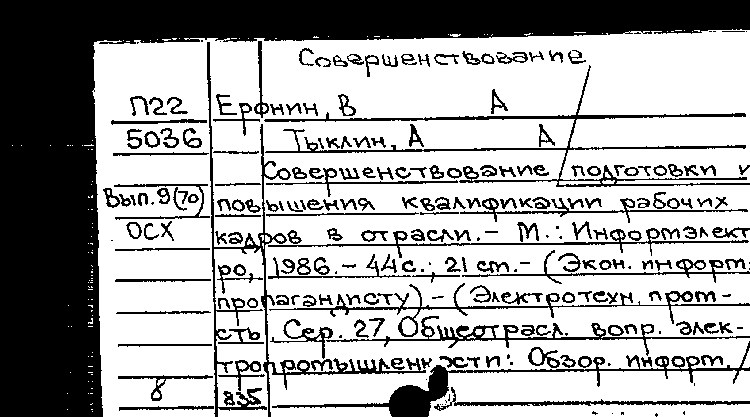 Совершенствование
П22 Ерфнин, В А
5036 Тыклин, А А
Совершенствование подготовки и
Вып.9(70) повышения квалификации рабочих
ОСХ кадров в отрасли.- М.: Информэлект
ро, 1986.- 44с.; 21 ст.- (Экон. информ.
пропагандисту).- (Электротехн. пром-
сть. Сер. 27, Общеотрасл. вопр. элек-
тропромышленности: Обзор. информ. /
8 835